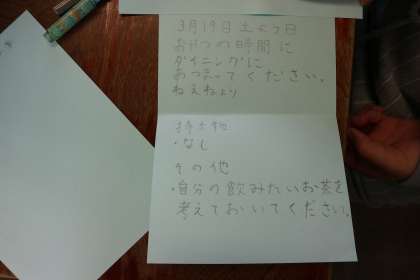 3月19日土よう日
おやつの時間に
ダイニングに
あつまってください。
ねえねより
持ち物
・なし
その他
・自分の飲みたいお茶を
考えておいてください。